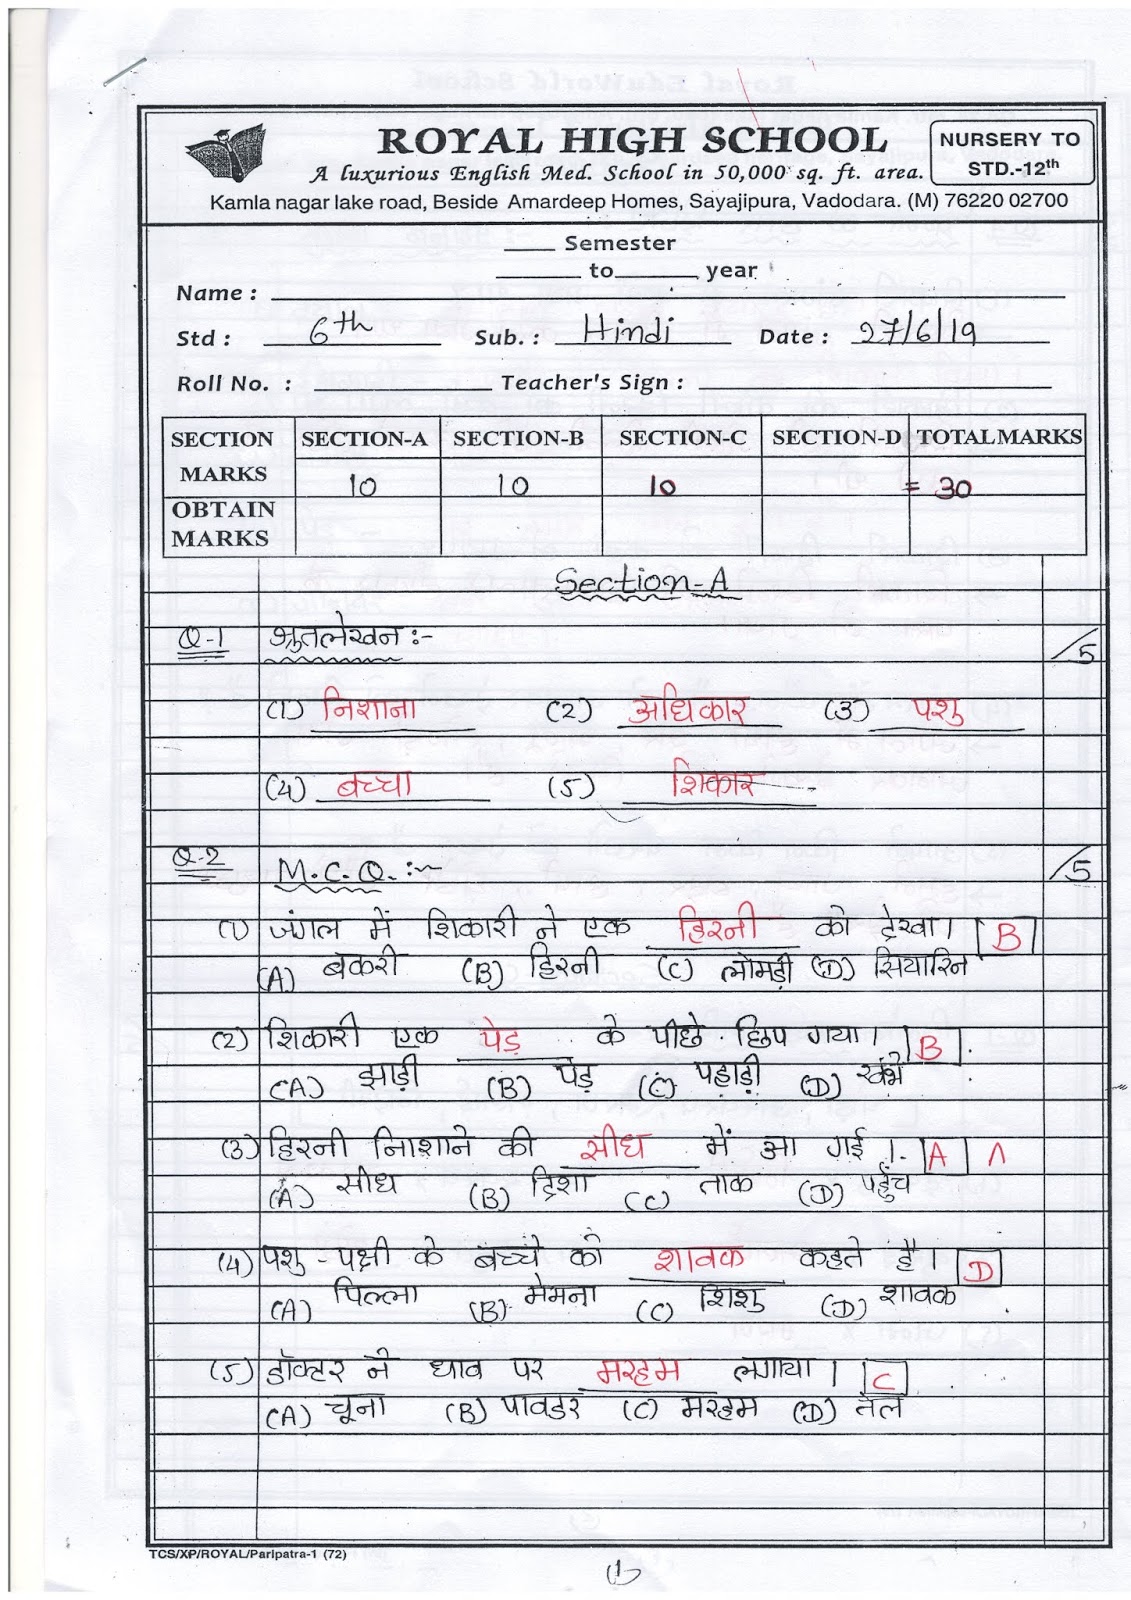 ROYAL HIGH SCHOOL
A luxurious English Med. School in 50,000 sq. ft. area.
NURSERY TO
STD.-12th
Kamla nagar lake road, Beside Amardeep Homes, Sayajipura, Vadodara. (M) 76220 02700
____ Semester
______ to ______ year
Name :
Std : 6th Sub. : Hindi Date : 27/6/19
Roll No. : Teacher's Sign :
SECTION MARKS SECTION-A SECTION-B SECTION-C SECTION-D TOTAL MARKS
10 10 10 = 30
OBTAIN MARKS
Section-A
Q-1 श्रुतलेखन :- /5
(1) निशाना (2) अधिकार (3) पशु
(4) बच्चा (5) शिकार
Q-2 M.C.Q. :- /5
(1) जंगल में शिकारी ने एक हिरनी को देखा। B
(A) बकरी (B) हिरनी (C) लोमड़ी (D) सियारिन
(2) शिकारी एक पेड़ के पीछे छिप गया। B
(A) झाड़ी (B) पेड़ (C) पहाड़ी (D) खंभे
(3) हिरनी निशाने की सीध में आ गई। A
(A) सीध (B) दिशा (C) ताक (D) पहुँच
(4) पशु-पक्षी के बच्चे को शावक कहते हैं। D
(A) पिल्ला (B) मेमना (C) शिशु (D) शावक
(5) डॉक्टर ने घाव पर मरहम लगाया। C
(A) चूना (B) पावडर (C) मरहम (D) तेल
TCS/XP/ROYAL/Paripatra-1 (72)
(1)